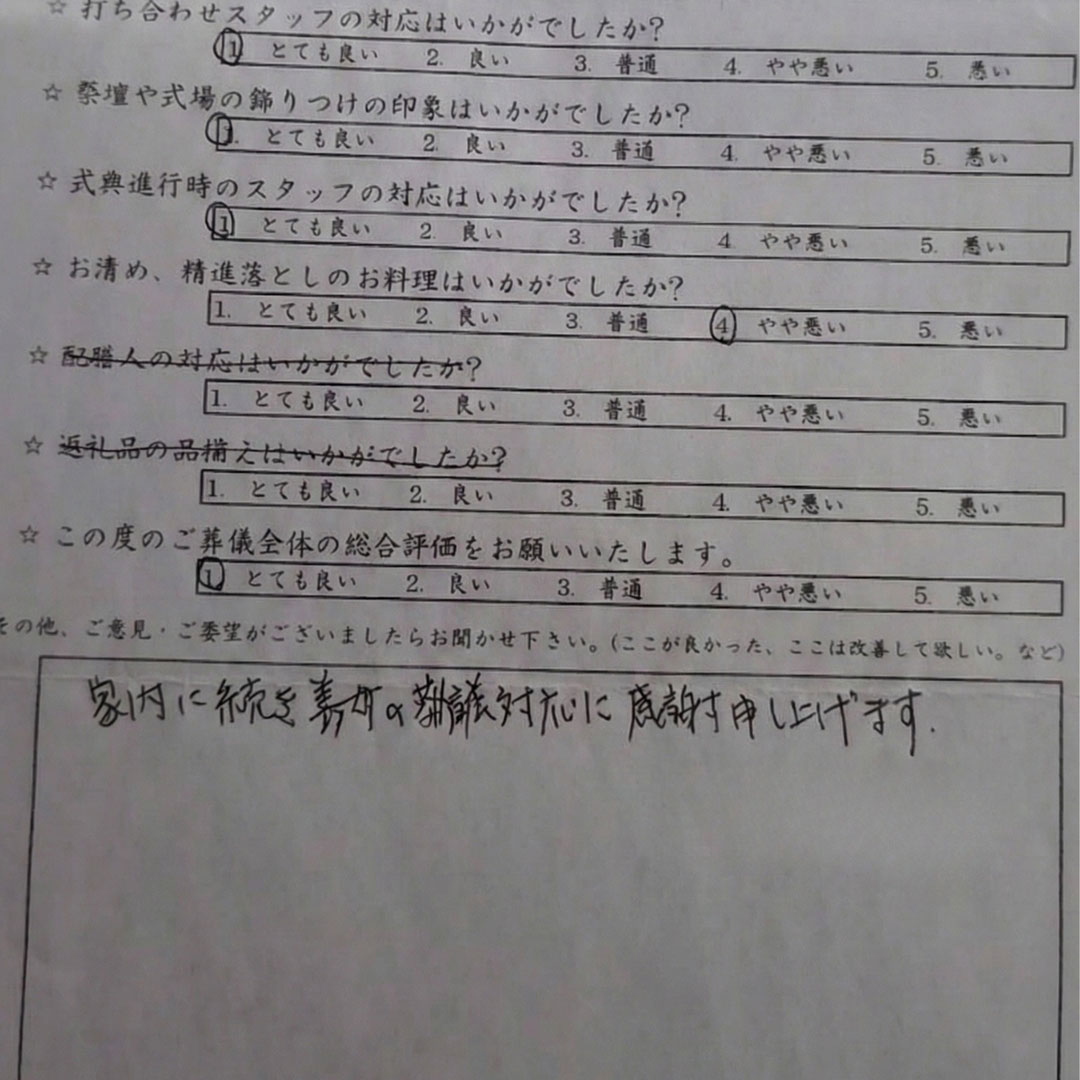 ☆ 打ち合わせスタッフの対応はいかがでしたか?
1 とても良い 2. 良い 3. 普通 4. やや悪い 5. 悪い
☆ 祭壇や式場の飾りつけの印象はいかがでしたか?
1. とても良い 2. 良い 3. 普通 4. やや悪い 5. 悪い
☆ 式典進行時のスタッフの対応はいかがでしたか?
1 とても良い 2. 良い 3. 普通 4 やや悪い 5. 悪い
☆ お清め、精進落としのお料理はいかがでしたか?
1. とても良い 2. 良い 3. 普通 4 やや悪い 5. 悪い
☆ 配膳人の対応はいかがでしたか?
1. とても良い 2. 良い 3. 普通 4. やや悪い 5. 悪い
☆ 返礼品の品揃えはいかがでしたか?
1. とても良い 2. 良い 3. 普通 4. やや悪い 5. 悪い
☆ この度のご葬儀全体の総合評価をお願いいたします。
1. とても良い 2. 良い 3. 普通 4. やや悪い 5. 悪い
その他、ご意見・ご要望がございましたらお聞かせ下さい。(ここが良かった、ここは改善して欲しい。など)
家内に続き義母の葬議対応に感謝申し上げます.